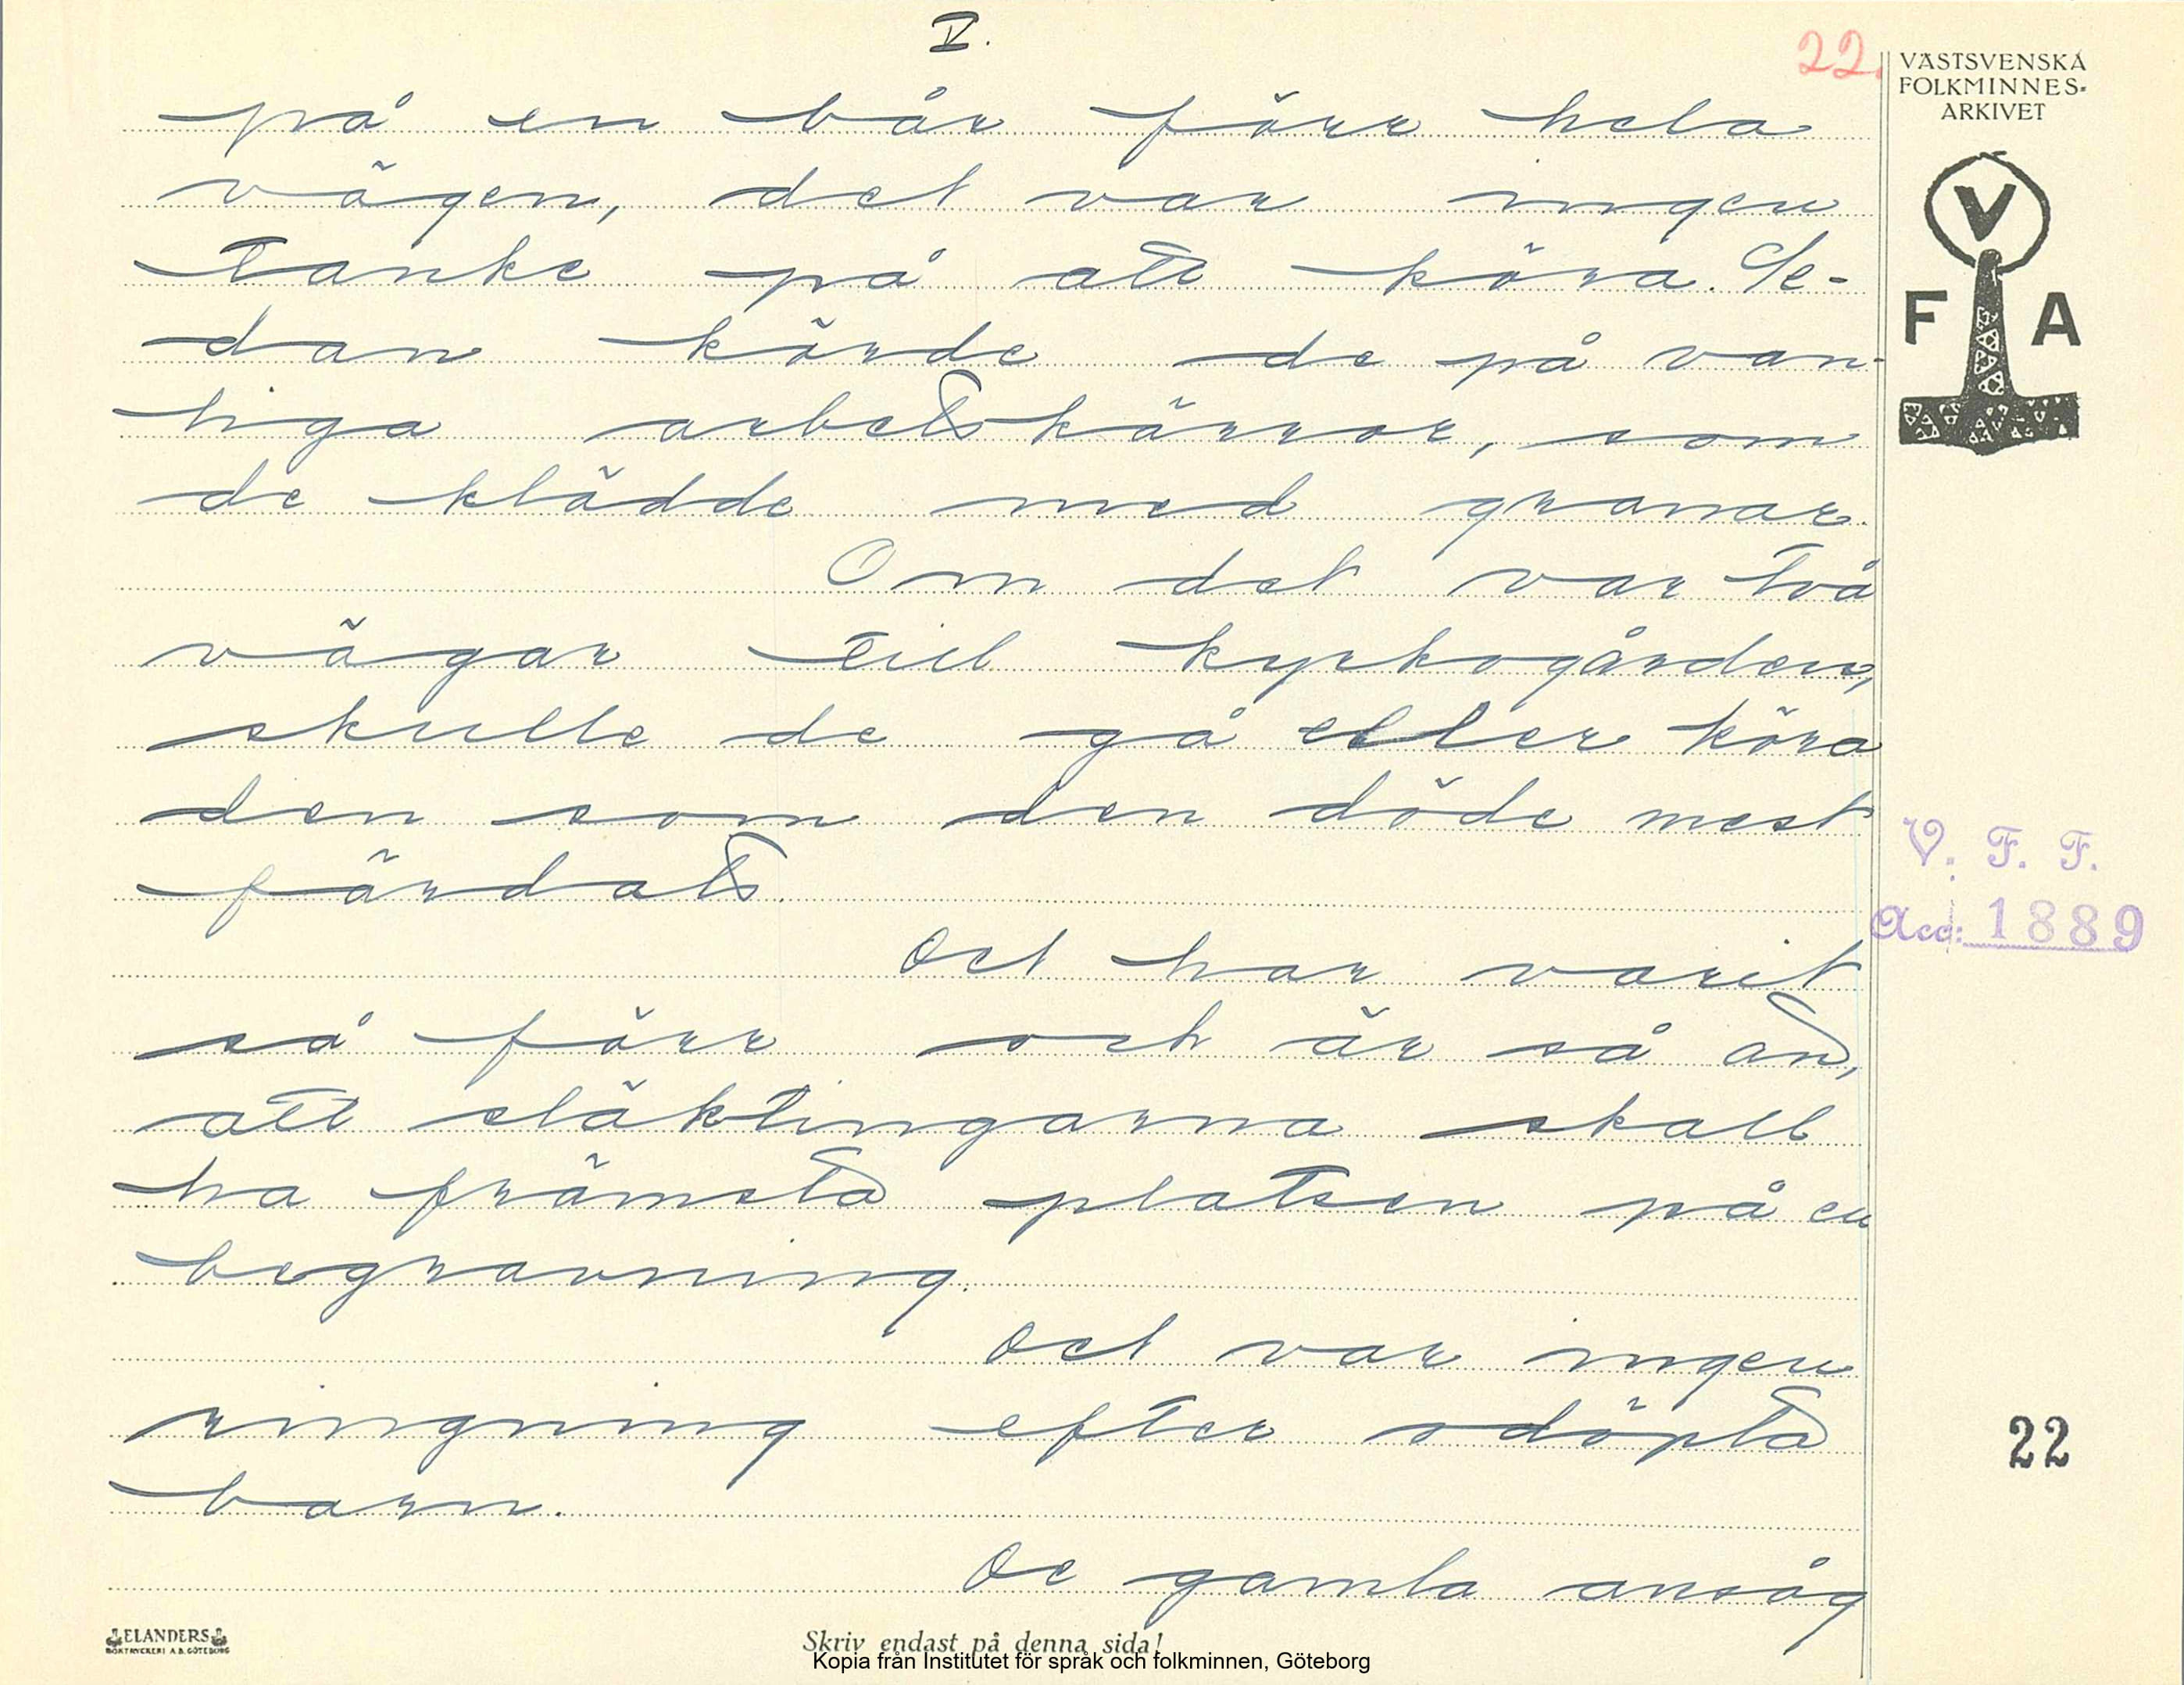 V.
22.
VÄSTSVENSKA
FOLKMINNES-
ARKIVET
på en bår förr hela
vägen, det var ingen
tanke på att köra. Se-
dan körde de på van-
liga arbetskärror, som
de klädde med granar.
Om det var två
vägar till kyrkogården,
skulle de gå eller köra
den som den döde mest
färdats.
Det har varit
så förr och är så än,
att släktingarna skall
ha främsta platsen på en
begravning.
Det var ingen
ringning efter odöpta
barn.
De gamla ansåg
V
F A
V. F. F.
Acc: 1889
22
ELANDERS
BOKTRYCKERI A.B. GÖTEBORG
Skriv endast på denna sida!
Kopia från Institutet för språk och folkminnen, Göteborg